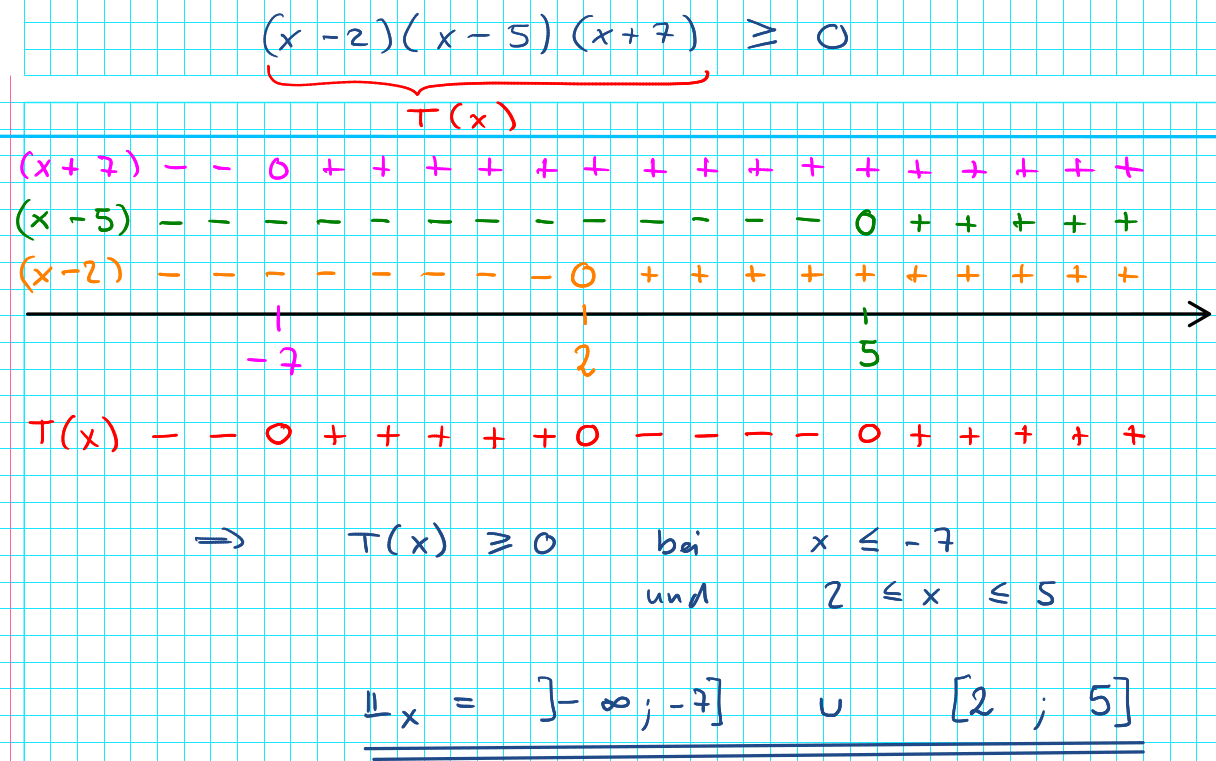 (x - 2)(x - 5)(x + 7) ≥ 0
T(x)
(x + 7) - - 0 + + + + + + + + + + + + + + + +
(x - 5) - - - - - - - - - - - - - 0 + + + + +
(x - 2) - - - - - - - - 0 + + + + + + + + + +
-7 2 5
T(x) - - 0 + + + + + 0 - - - - 0 + + + + +
⇒ T(x) ≥ 0 bei x ≤ -7
und 2 ≤ x ≤ 5
𝕃x = ]-∞; -7] ∪ [2 ; 5]